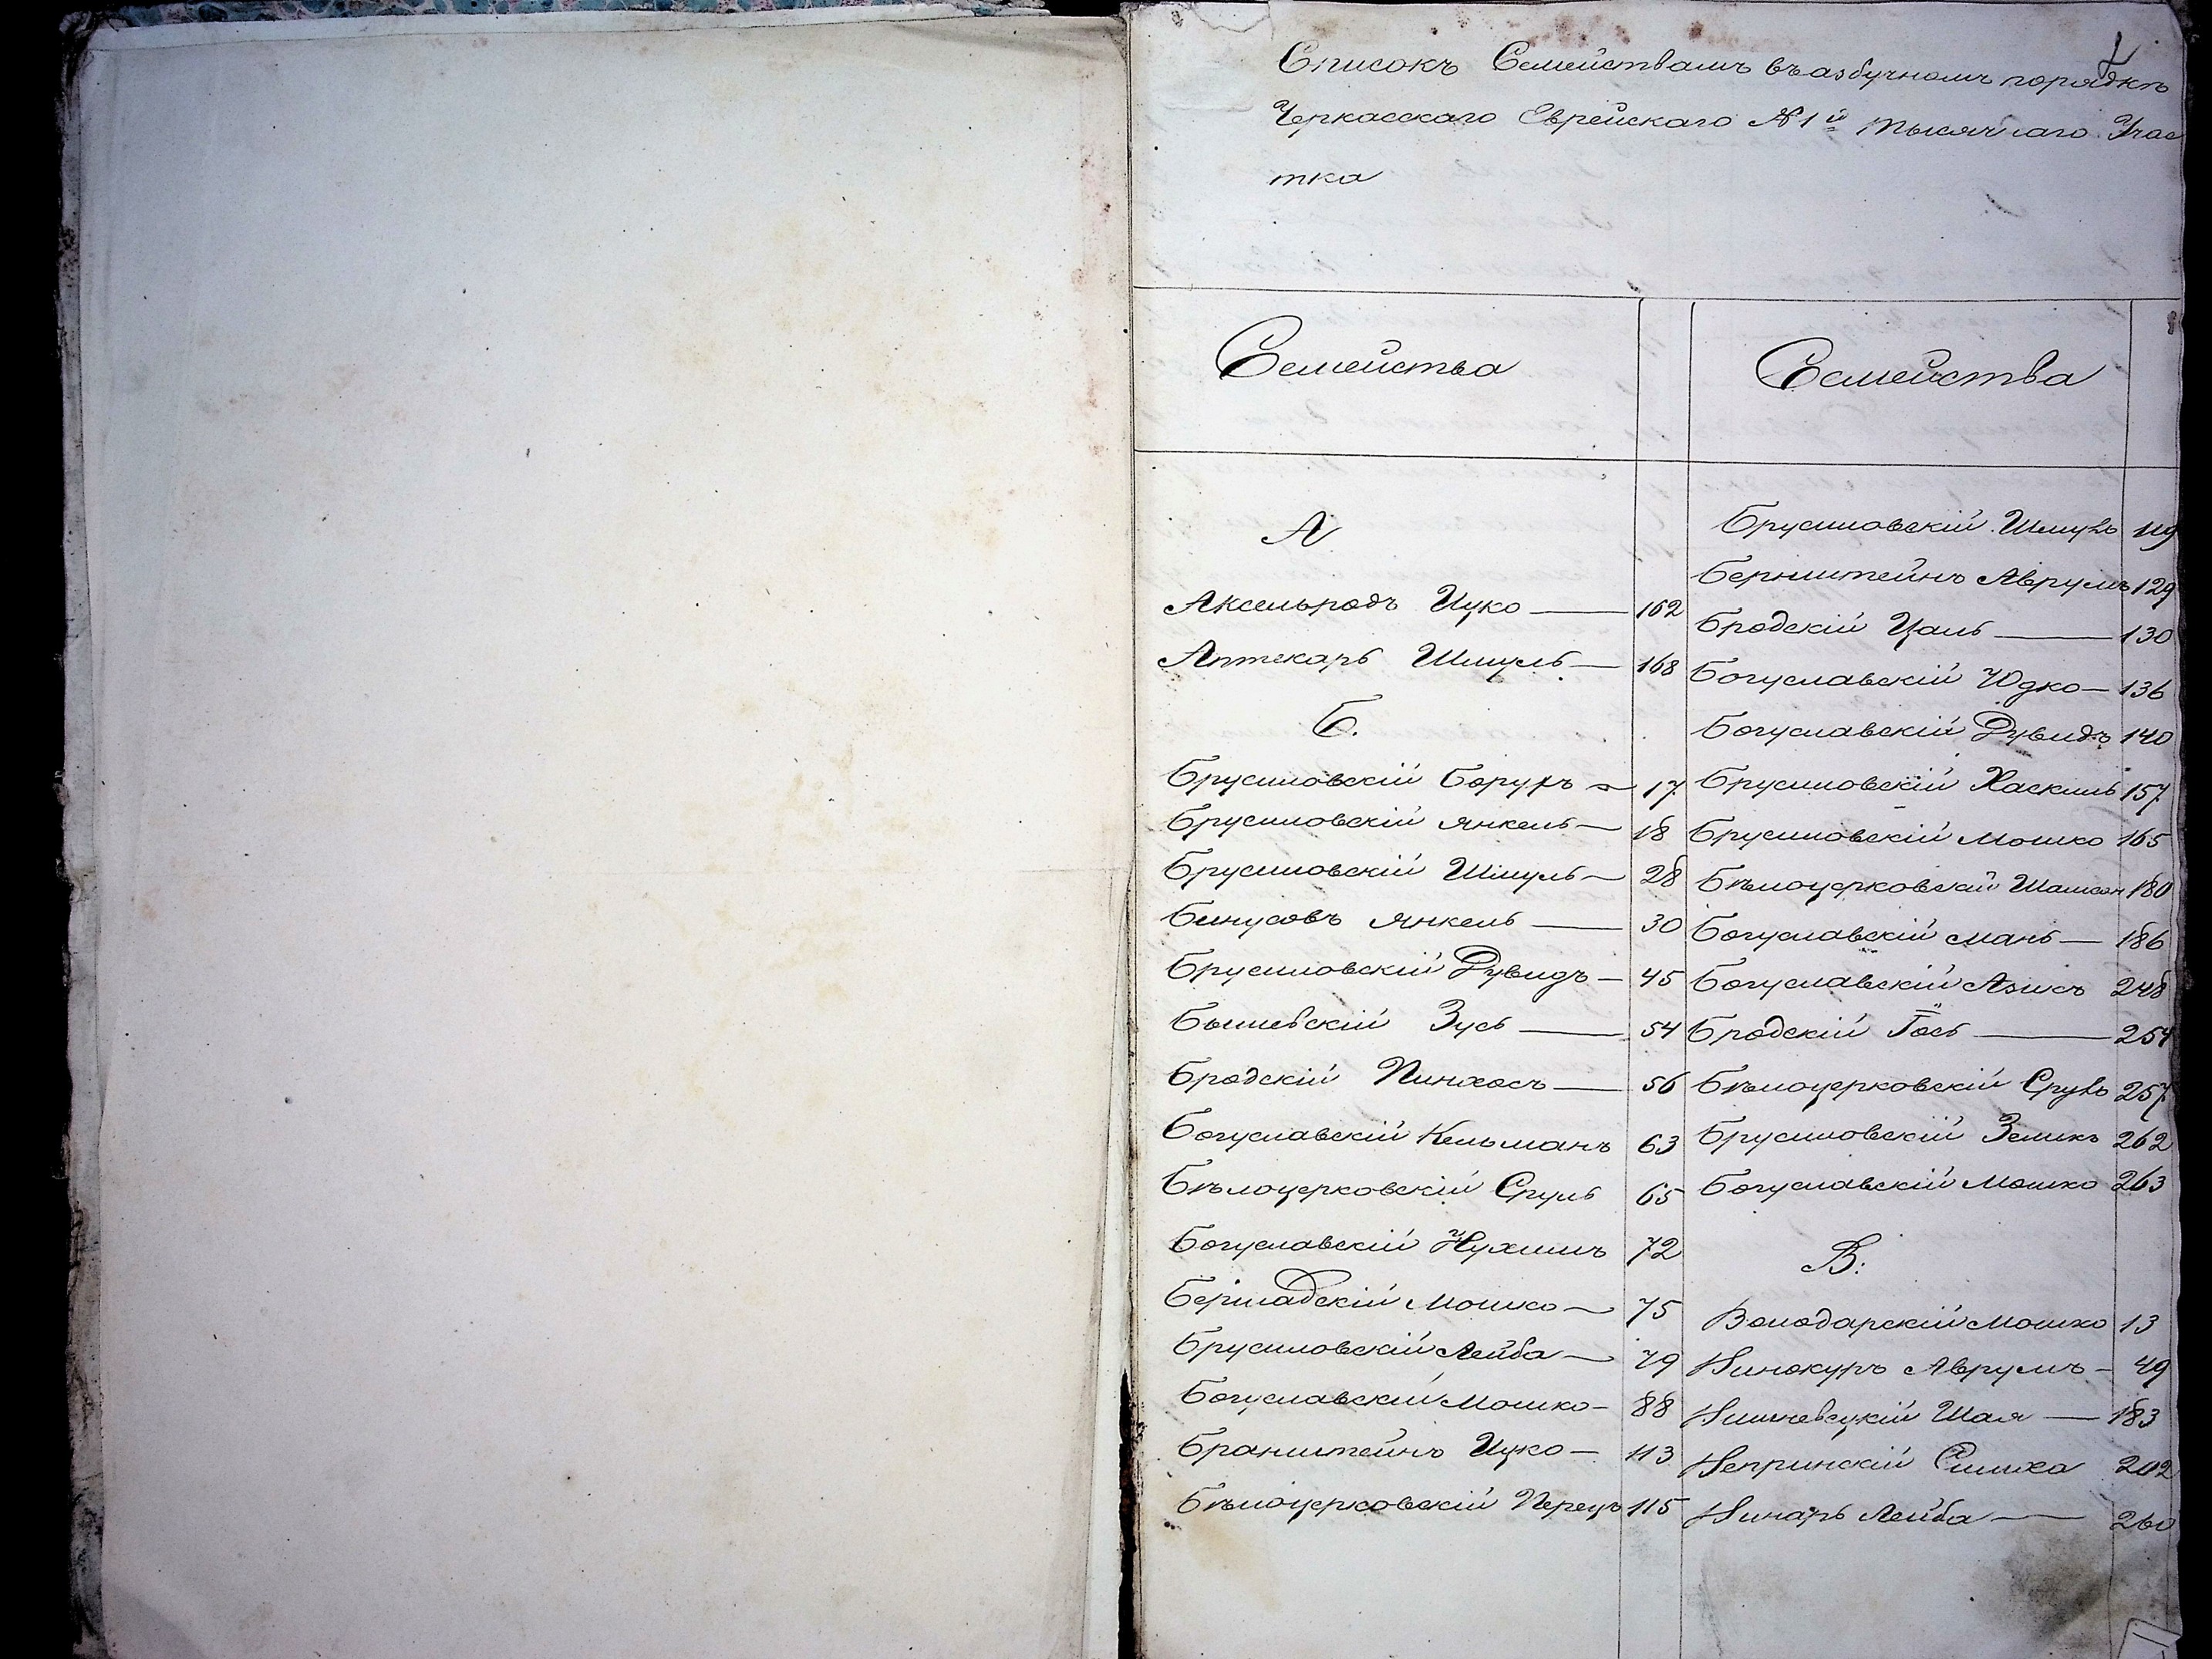 1
Списокъ Семействамъ въ азбучномъ порядкѣ
Черкасскаго Еврейскаго №1й тысячнаго Учас
тка
Семейства
Семейства
А
Аксельродъ Ицко — 162
Аптекарь Шмуль — 168
Б.
Брусиловскій Борухъ — 17
Брусиловскій Янкель — 18
Брусиловскій Шмуль — 28
Бинусовъ Янкель — 30
Брусиловскій Дувидъ — 45
Бышевскій Зусь — 54
Бродскій Пинхосъ — 56
Богуславскій Кельманъ 63
Бѣлоцерковскій Сруль 65
Богуславскій Нухимъ 72
Бершадскій Мошко — 75
Брусиловскій Лейба — 79
Богуславскій Мошко — 88
Бранштейнъ Ицко — 113
Бѣлоцерковскій Перецъ 115
Брусиловскій Шмуль 119
Бернштейнъ Аврумъ 129
Бродскій Цаль — 130
Богуславскій Юдко — 136
Богуславскій Дувидъ 140
Брусиловскій Хаскиль 157
Брусиловскій Мошко 165
Бѣлоцерковскій Шамсон 180
Богуславскій Мань — 186
Богуславскій Азикъ 248
Бродскій Іось — 254
Бѣлоцерковскій Сруль 257
Брусиловскій Зеликъ 262
Богуславскій Мошко 263
В:
Володарскій Мошко 13
Винокуръ Аврумъ — 49
Вишневецкій Шая — 183
Веприцкій Симха 202
Винарь Лейба — 260